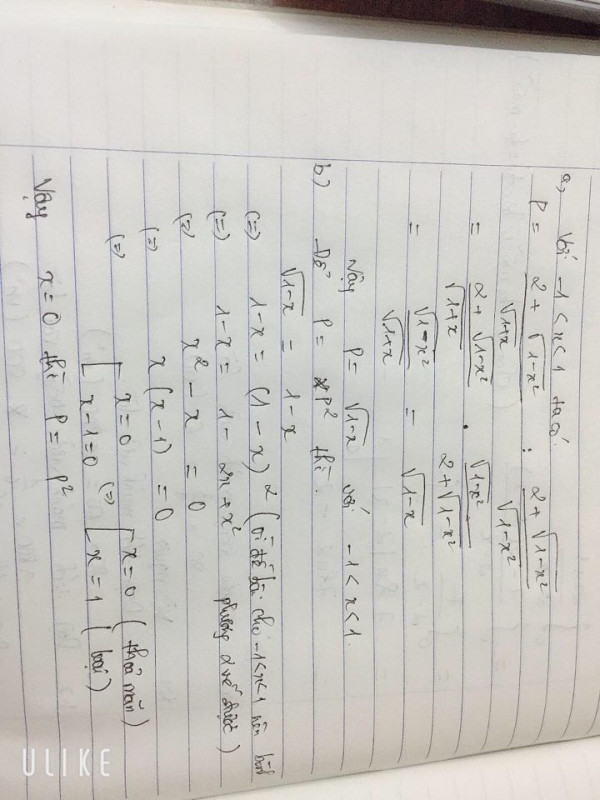 a, Với -1<x<1 ta có:
P = (2 + √(1-x²))/√(1+x) : (2 + √(1-x²))/√(1-x²)
= (2 + √(1-x²))/√(1+x) . √(1-x²)/(2+√(1-x²))
= √(1-x²)/√(1+x) = √(1-x)
Vậy P = √(1-x) với -1<x<1.
b) Để P = P² thì:
√(1-x) = 1-x
(=) 1-x = (1-x)² (vì đề bài cho -1<x<1 nên bình
(=) 1-x = 1-2x+x² phương 2 vế được)
(=) x² - x = 0
(=) x(x-1) = 0
(=) [ x=0 (=) [ x=0 (thoả mãn)
x-1=0 x=1 (loại)
Vậy x=0 thì P=P²
ULIKE